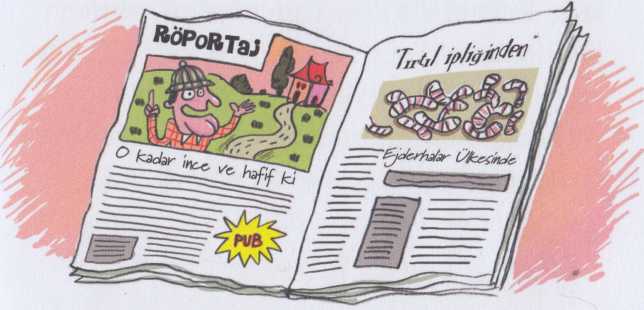 RÖPORTAJ
O kadar ince ve hafif ki
PUB
"Tırtıl ipliğinden"
Ejderhalar Ülkesinde